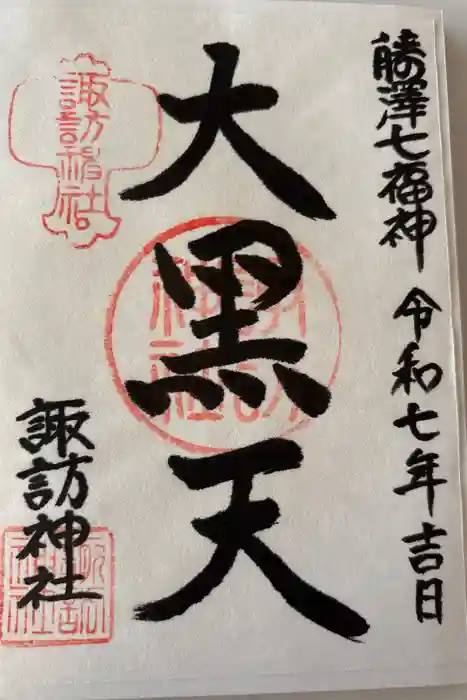 藤澤七福神 令和七年吉日
大黒天
諏訪神社
諏訪神社
諏訪神社
諏訪神社